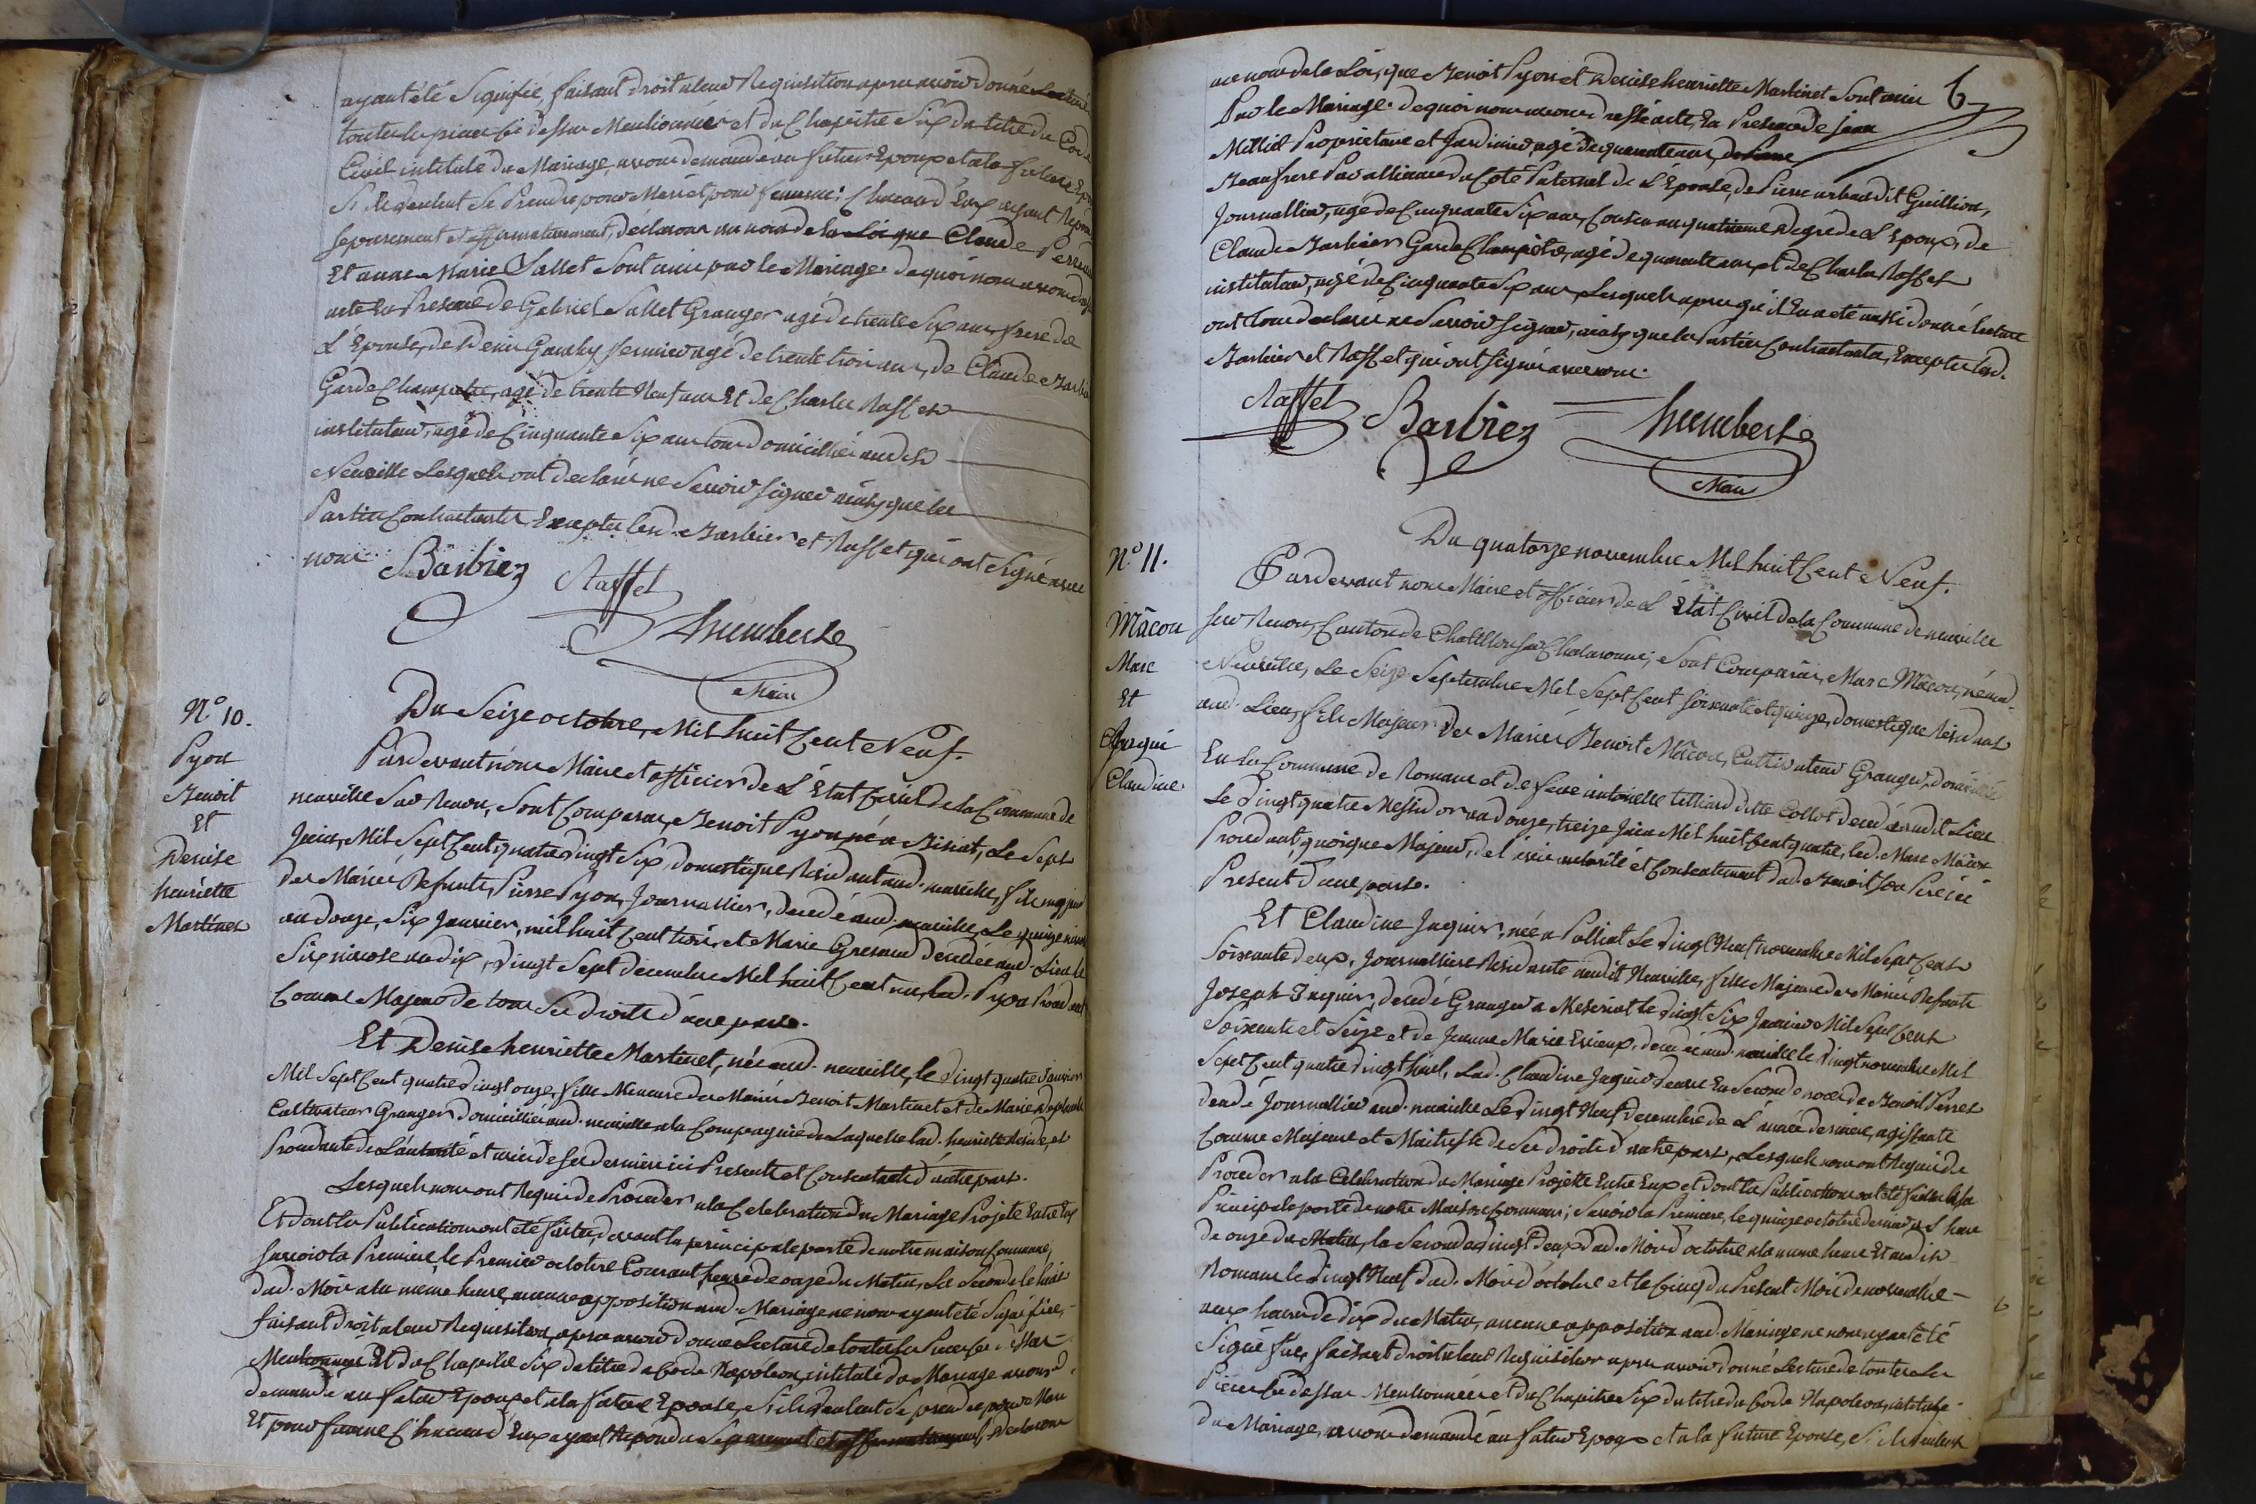 ayant été Signifié, faisant droit a leur Requisition apres avoir donné Lecture
toutes les pieces ci dessus Mentionnées et du Chapitre Six du titre du Code
Civil intitulé du Mariage, avons demandé au futur Epoux et a la future Ep
S'ils veulent Se Prendre pour Mari et pour femme; Chacun d'Eux ayant Repon
separement et affirmativement, declarons au nom de la Loi que Claude Perr
Et anne Marie Sallet Sont unis par le Mariage. de quoi nous avons dr
acte En Presence de Gabriel Sallet Granger agé de trente Six ans, frere de
L'Epouse, de Denis Gauthy fermier agé de trente trois ans, de Claude Barbi
Garde Champetre, agé de trente Neuf ans Et de Charles Raffet
instituteur, agé de Cinquante Six ans tous domiciliés aud. it
Neuville Lesquels ont declaré ne Savoir signer ainsy que les
Parties Contractantes Exceptés lesd. Barbier et Raffet qui ont Signé avec
nous Barbiez Raffet
humberte
Maire
N.° 10.
Du Seize octobre, Mil huit Cent Neuf.
Pyon
Benoit
Et
Denise
henriette
Martinet
Pardevant nous Maire et officier de L'Etat Civil de la Commune de
neuville Sur Renon, Sont Comparus, Benoit Pyon né a Biziat, Le Sept
Juin, Mil Sept Cent quatre vingt Six, domestique Residant aud. neuville, fils majeur
des Mariés Defunts, Pierre Pyon, Journallier, decedé aud. neuville, Le quinze nivos
an douze, Six Janvier, mil huit Cent trois, et Marie Gresaud decedée aud. Lieu le
Six nivose an dix, vingt Sept decembre Mil huit Cent un, Led. Pyon Procedant
Comme Majeur de tous Ses droits d'une part.
Et Denise henriette Martinet, née aud. neuville, le vingt quatre Janvier
Mil Sept Cent quatre vingt onze, fille Mineure des Mariés Benoit Martinet et de Marie
Cultivateur Granger domicilliés aud. neuville a la Compagnie de Laquelle lad. henriette Reside, et
Procedante de L'autorité et avis de Ses derniers ici Presents et Consentants d'autre part.
Lesquels nous ont Requis de Proceder a la Celebration du Mariage Projeté Entre Eux
Et dont les Publications ont été faites, devant la principale porte de notre maison Commune;
Savoir la Premiere le Premier octobre Courant heure de onze du Matin, La Seconde le huit
dud. Mois a la meme heure, aucune opposition aud. Mariage ne nous ayant été Signifiée,
faisant droit a leur Requisition, apres avoir donné Lecture de toutes les Pieces Ci dessus
Mentionnées Et du Chapitre Six du titre du Code Napoléon, intitulé du Mariage avons
demandé au futur Epoux et a la future Epouse, S'ils veulent Se prendre pour Mari
Et pour femme Chacun d'Eux ayant Repondu Separement et affirmativement, Declarons
6
au nom de la Loi, que Benoit Pyon et Denise henriette Martinet Sont unis
Par le Mariage. de quoi nous avons dressé acte, En Presence de jean
Millet Proprietaire et Jardinier, agé de quarante ans,
Beaufrere Par alliance du Coté Paternel de L'Epouse, de Pierre dit Guillion,
Journallier, agé de Cinquante Six ans, Cousin au quatrieme degré de L'Epoux, de
Claude Barbier Garde Champetre, agé de quarante ans, et de Charles Raffet
instituteur, agé de Cinquante Six ans, Lesquels apres qu'il En a eté aussi donné lecture
ont tous declaré ne Savoir signer, ainsy que les Parties Contractantes, Exceptés lesd.
Barbier et Raffet qui ont signé avec nous.
Raffet Barbiez humberte
Maire
N.° 11.
Du quatorze novembre Mil huit Cent Neuf.
Mâcon
Marc
Et
Claudine
Pardevant nous Maire et officier de L'Etat Civil de la Commune de neuville
sur Renon, Canton de Chatillon sur Chalaronne, Sont Comparus, Marc Mâcon, né aud.
Neuville, Le Seize Septembre Mil Sept Cent soixante et quinze, domestique Residant
aud. Lieu, fils Majeur des Mariés Benoit Mâcon, Cultivateur Granger, domicillié
En La Commune de Romans et de feue antoinette tilliard ditte Collot decedée audit Lieu
Le vingt quatre Messidor an douze, treize Juin Mil huit Cent quatre, led. Marc Mâcon
Procedant, quoique Majeur, de l'avis autorité et Consentement dud. Benoit Son Pere ici
Present d'une part.
Et Claudine Jaquier, née a Polliat Le vingt Neuf novembre Mil Sept Cent
Soixante deux, Journalliere Residante audit Neuville, fille Majeure des Mariés Defunts
Joseph Jaquier, decedé Granger a Mezeriat le vingt Six Janvier Mil Sept Cent
Soixante et Seize et de Jeanne Marie decedée aud. neuville le vingt novembre Mil
Sept Cent quatre vingt huit, Lad. Claudine Jaquier veuve En Seconde noces de Benoit Perret
decedé Journallier aud. neuville Le vingt Neuf decembre de L'année derniere, agissante
Comme Majeure et Maitresse de Ses droits d'autre part, Lesquels nous ont Requis de
Proceder a la Celebration du Mariage Projetté Entre Eux et dont les Publications ont été faittes
Principale porte de notre Maison Commune; Savoir la Premiere, le quinze octobre dernier a L'heure
de onze du Matin, la Seconde vingt deux dud. Mois d'octobre a la meme heure Et aud. it
Romans le vingt Neuf dud. Mois d'octobre et le Cinq du Present Mois de novembre
aux heures de dix du Matin, aucune opposition aud. Mariage ne nous ayant été
Signifiée, faisant droit a leur Requisition apres avoir donné Lecture de toutes Les
Pieces Ci dessus Mentionnées et du Chapitre Six du titre du Code Napoleon, intitulé
du Mariage, avons demandé au futur Epoux et a la future Epouse, S'ils veulent